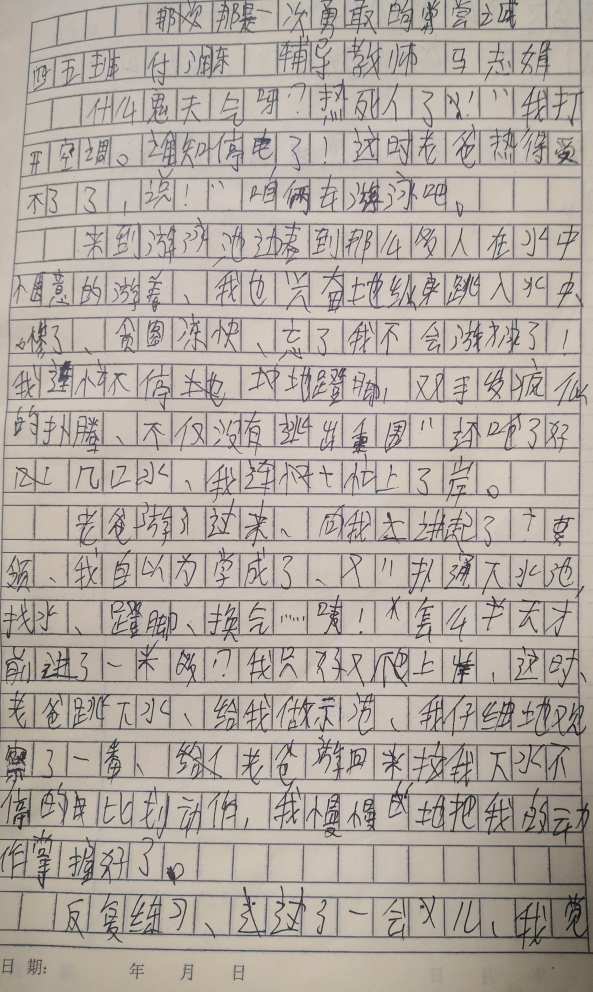 那次那是一次勇敢的尝尝之试
四五班 付润东 辅导教师 马志雄
什么鬼天气呀?热死人了!"我打
开空调。谁知停电了!这时老爸热得受
不了了,说!"咱俩去游泳吧。
来到游泳池边看到那么多人在水中
惬意的游着、我也兴奋地纵身跳入水中、
惨了、贪图凉快、忘了我不会游泳了!
我连忙不停地 地蹬脚,双手发疯似
的扑腾、不仅没有逃出重围"还呛了好
几口水、我连忙上了岸。
老爸游了过来、向我讲起了要
领、我自以为学成了、又"扑通下水池,
找水、蹬脚、换气……咦!怎么半天才
前进了一米多?我只好又爬上岸,这时、
老爸跳下水、给我做示范、我仔细地观
察了一番、老爸游回来 我下水不
停的 比划动作,我慢慢的地把我的动
作掌握好了。
反复练习、过了一会儿、我觉
日期: 年 月 日